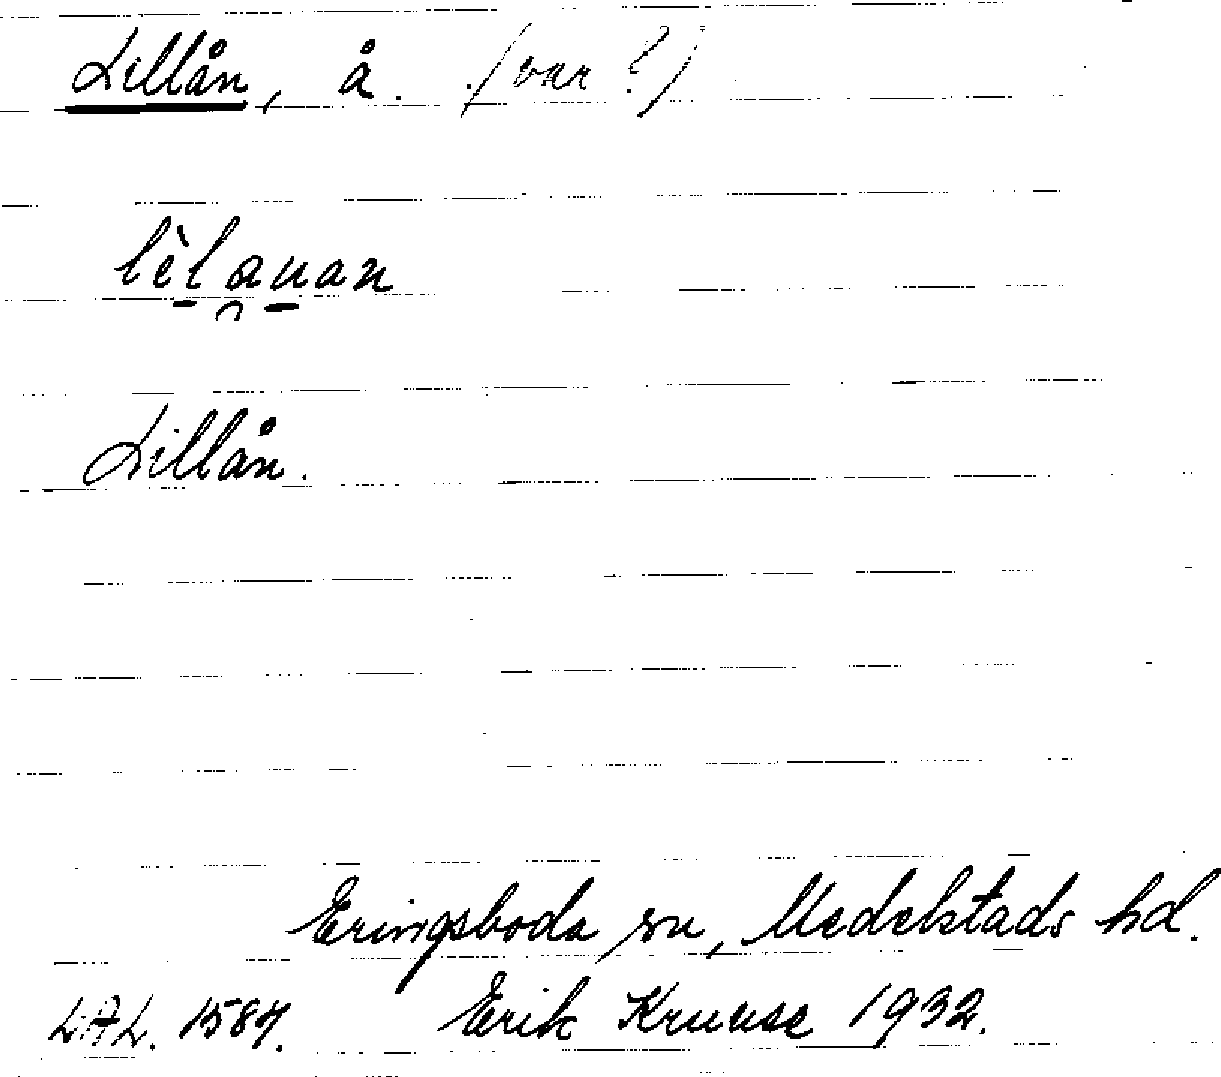 Lillån, å. (var?)
lèlauan
Lillån.
Eringsboda sn, Medelstads hd.
LAL. 1587. Erik Kruuse 1932.